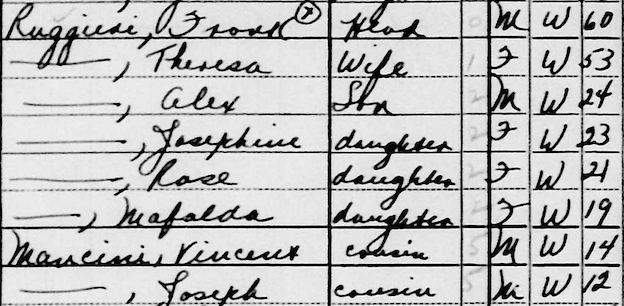 Ruggieri, Frank ⓧ Head 0 M W 60
—, Theresa Wife 1 F W 53
—, Alex Son 2 M W 24
—, Josephine daughter 2 F W 23
—, Rose daughter 2 F W 21
—, Mafalda daughter 2 F W 19
Mancini, Vincent cousin 5 M W 14
—, Joseph cousin 5 M W 12